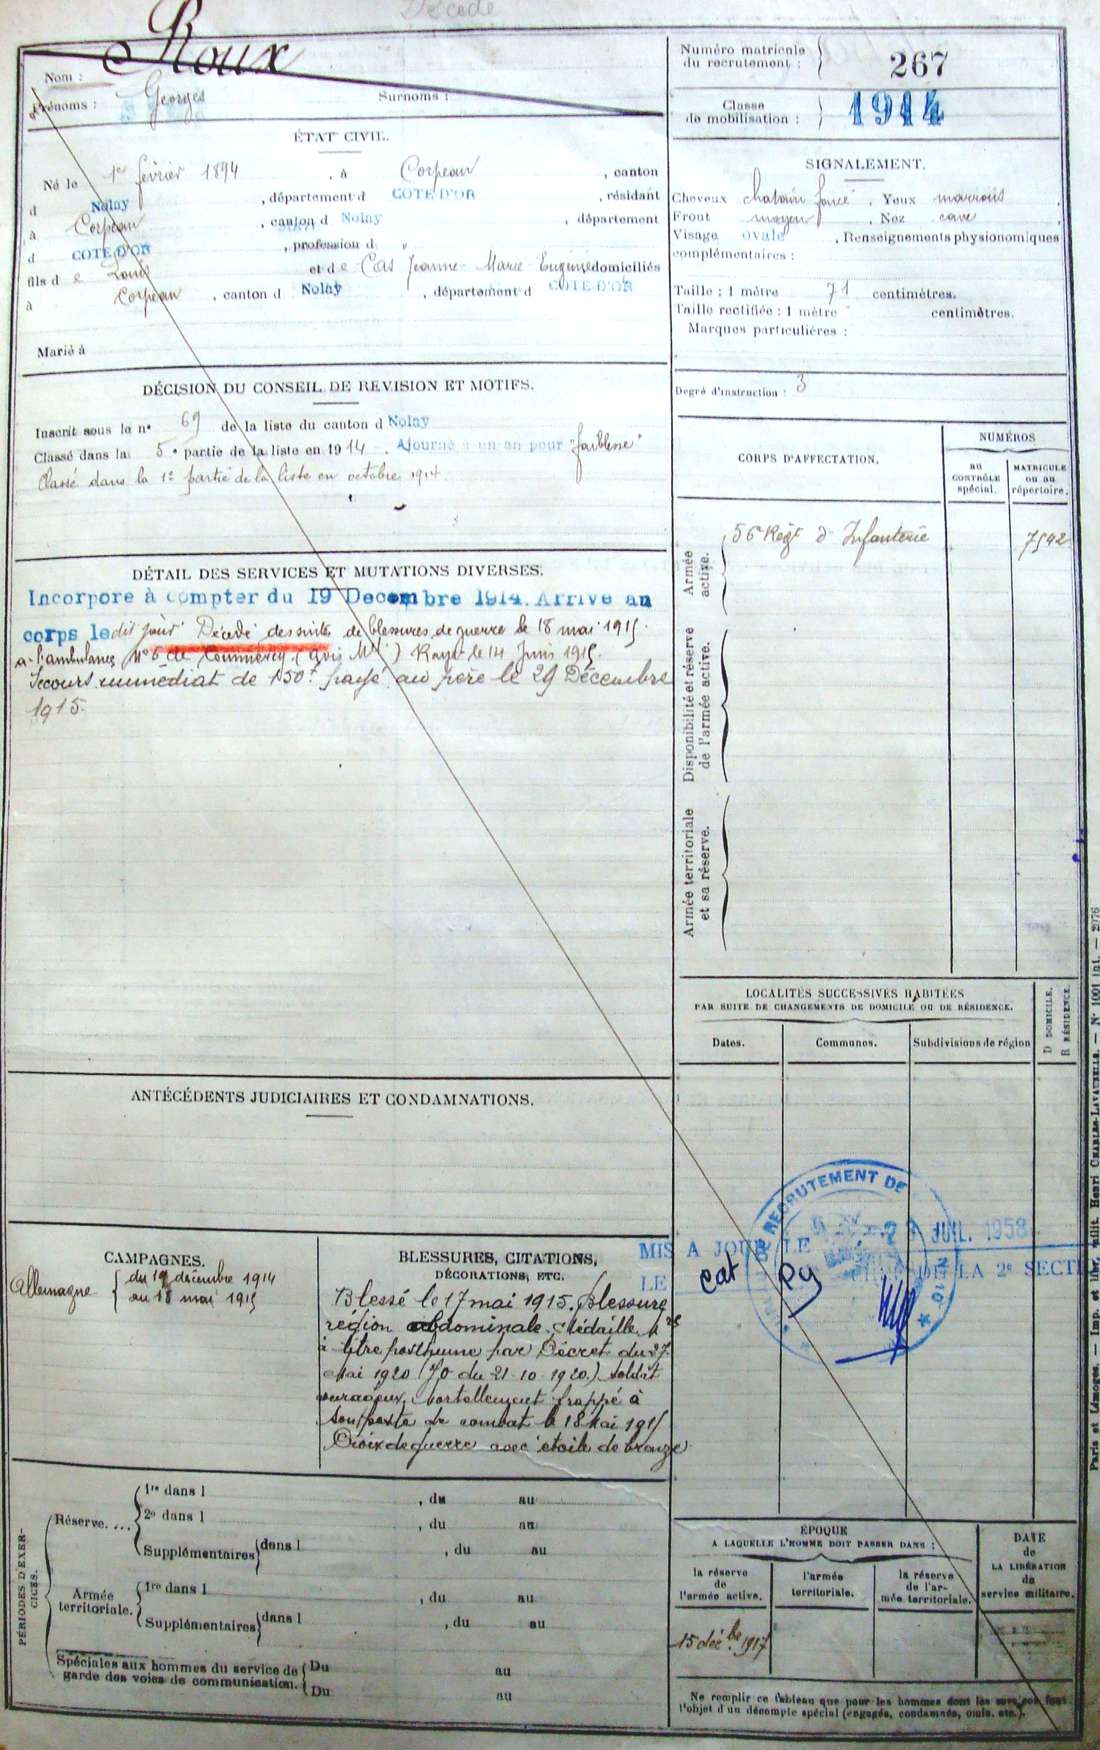 Décédé
Nom : Roux
Prénoms : Georges Surnoms :
Numéro matricule du recrutement : 267
Classe de mobilisation : 1914
ÉTAT CIVIL.
Né le 1er février 1894, à Corpeau, canton
d Nolay, département d COTE D'OR, résidant
à Corpeau, canton d Nolay, département
d COTE D'OR, profession d "
fils d e Louis et d e Cas Jeanne-Marie-Eugénie domiciliés
à Corpeau, canton d Nolay, département d COTE D'OR
Marié à
SIGNALEMENT.
Cheveux chatain foncé, Yeux marrons
Front moyen, Nez cave
Visage ovale, Renseignements physionomiques
complémentaires :
Taille : 1 mètre 71 centimètres.
Taille rectifiée : 1 mètre centimètres.
Marques particulières :
Degré d'instruction : 3
DÉCISION DU CONSEIL DE REVISION ET MOTIFS.
Inscrit sous le n° 69 de la liste du canton d Nolay
Classé dans la 5e partie de la liste en 1914. Ajourné à un an pour "faiblesse"
Classé dans la 1e partie de la liste en octobre 1914
CORPS D'AFFECTATION.
NUMÉROS
au CONTRÔLE spécial.
MATRICULE ou au répertoire.
Armée active.
56e Régt d'Infanterie 7542
Disponibilité et réserve de l'armée active.
Armée territoriale et sa réserve.
DÉTAIL DES SERVICES ET MUTATIONS DIVERSES.
Incorporé à compter du 19 Decembre 1914. Arrivé au
corps ledit jour. Décédé des suites de blessures de guerre le 18 mai 1915
à l'ambulance N° 6 de Commercy (avis Mel) Rayé le 14 Juin 1915.
Secours immédiat de 150f payé au père le 29 Décembre
1915.
LOCALITÉS SUCCESSIVES HABITÉES
PAR SUITE DE CHANGEMENTS DE DOMICILE OU DE RÉSIDENCE.
Dates. Communes. Subdivisions de région D DOMICILE. R RÉSIDENCE.
ANTÉCÉDENTS JUDICIAIRES ET CONDAMNATIONS.
RECRUTEMENT DE
MIS A JOUR LE 2 JUIL. 1958
LE DE LA 2e SECTI
cat
CAMPAGNES.
Allemagne { du 19 décembre 1914
au 18 mai 1915
BLESSURES, CITATIONS,
DÉCORATIONS, ETC.
Blessé le 17 mai 1915. Blessure
région abdominale. Médaille Mre
à titre posthume par Décret du 27
Mai 1920 (JO du 21-10-1920.) Soldat
courageux. Mortellement frappé à
son poste de combat le 18 Mai 1915
Croix de guerre avec étoile de bronze
PÉRIODES D'EXERCICES.
Réserve....
1re dans l , du au
2e dans l , du au
Supplémentaires dans l , du au
Armée territoriale.
1re dans l , du au
Supplémentaires dans l , du au
Spéciales aux hommes du service de garde des voies de communication.
Du au
Du au
ÉPOQUE
A LAQUELLE L'HOMME DOIT PASSER DANS :
la réserve de l'armée active.
l'armée territoriale.
la réserve de l'armée territoriale.
DATE de LA LIBÉRATION du service militaire.
15 décbe 1917
Ne remplir ce tableau que pour les hommes dont les services font
l'objet d'un décompte spécial (engagés, condamnés, omis, etc.).
Paris et Limoges. — Imp. et libr. milit. Henri CHARLES-LAVAUZELLE. — N° 1001 — 2076